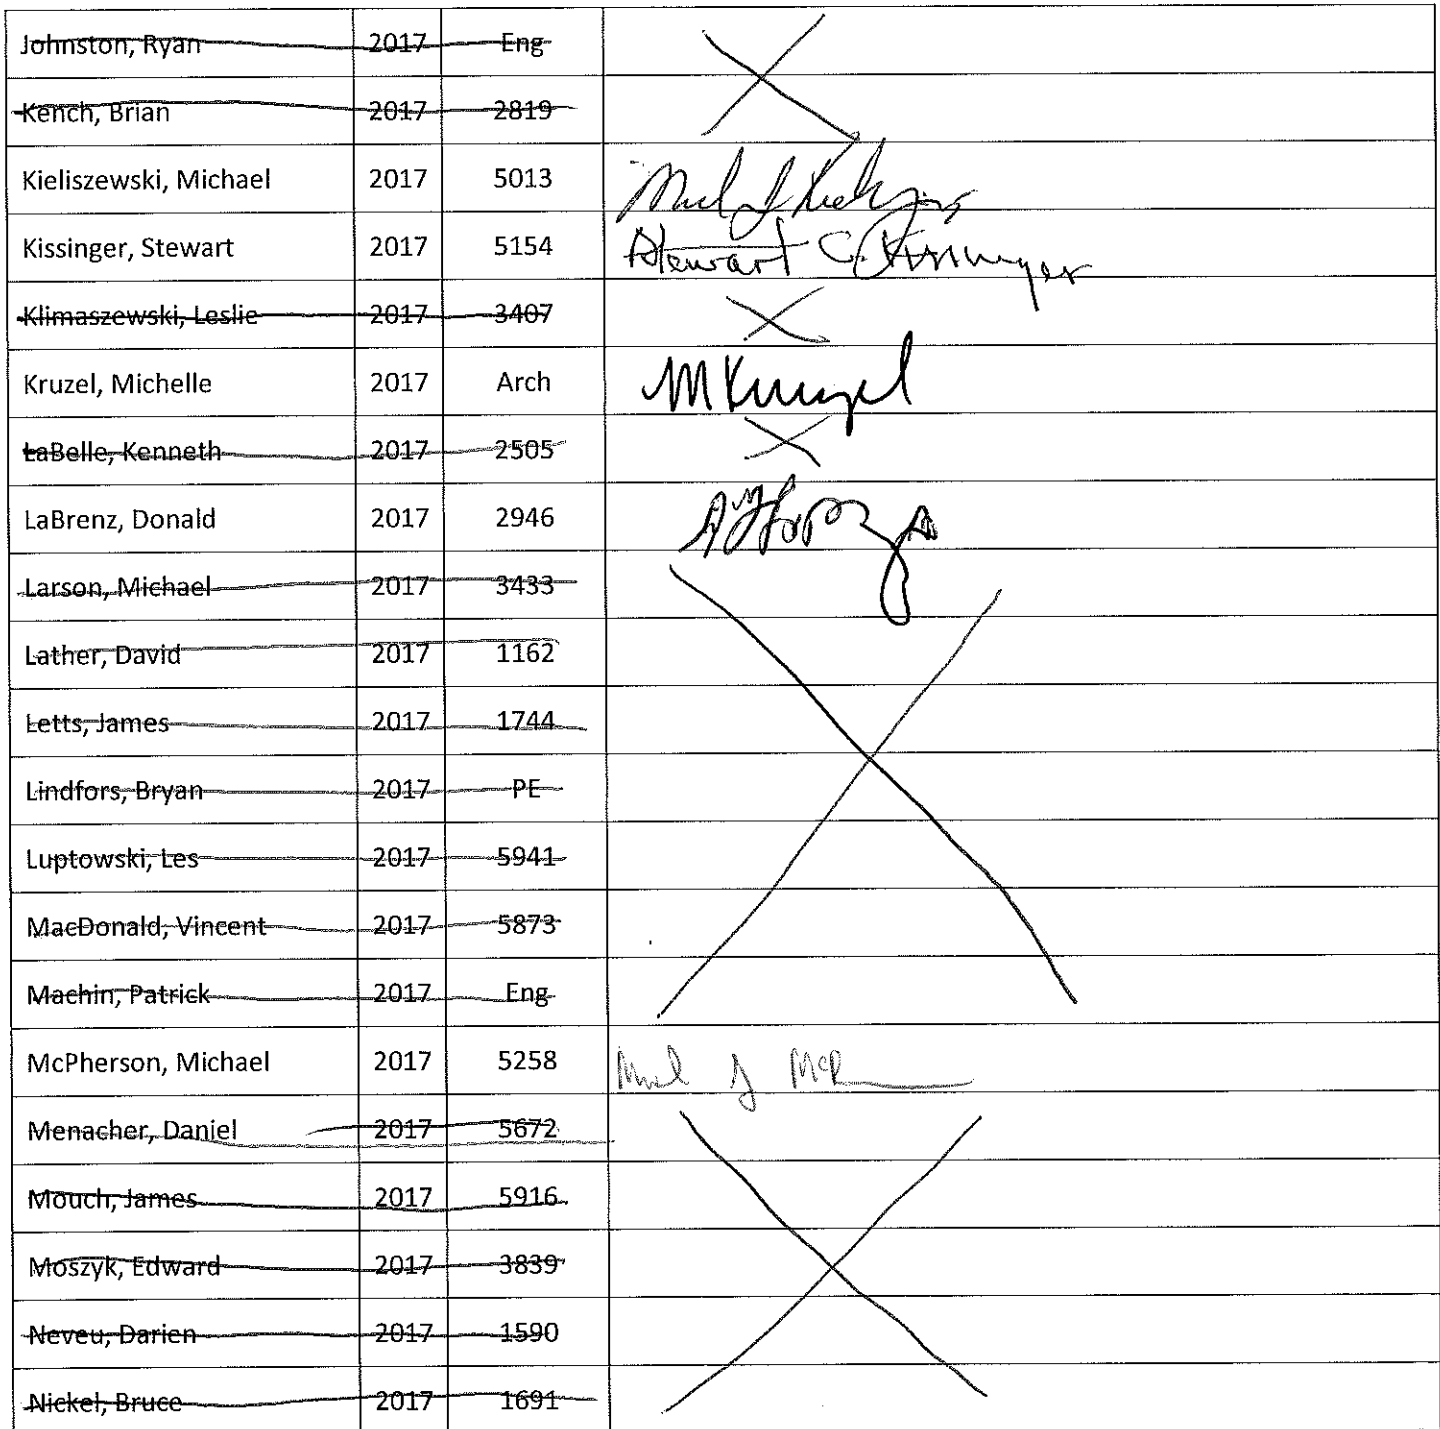 Johnston, Ryan 2017 Eng
Kench, Brian 2017 2819
Kieliszewski, Michael 2017 5013
Kissinger, Stewart 2017 5154 Stewart C. Kissinger
Klimaszewski, Leslie 2017 3407
Kruzel, Michelle 2017 Arch M Kruzel
LaBelle, Kenneth 2017 2505
LaBrenz, Donald 2017 2946
Larson, Michael 2017 3433
Lather, David 2017 1162
Letts, James 2017 1744
Lindfors, Bryan 2017 PE
Luptowski, Les 2017 5941
MacDonald, Vincent 2017 5873
Machin, Patrick 2017 Eng
McPherson, Michael 2017 5258
Menacher, Daniel 2017 5672
Mouch, James 2017 5916
Moszyk, Edward 2017 3839
Neveu, Darien 2017 1590
Nickel, Bruce 2017 1691